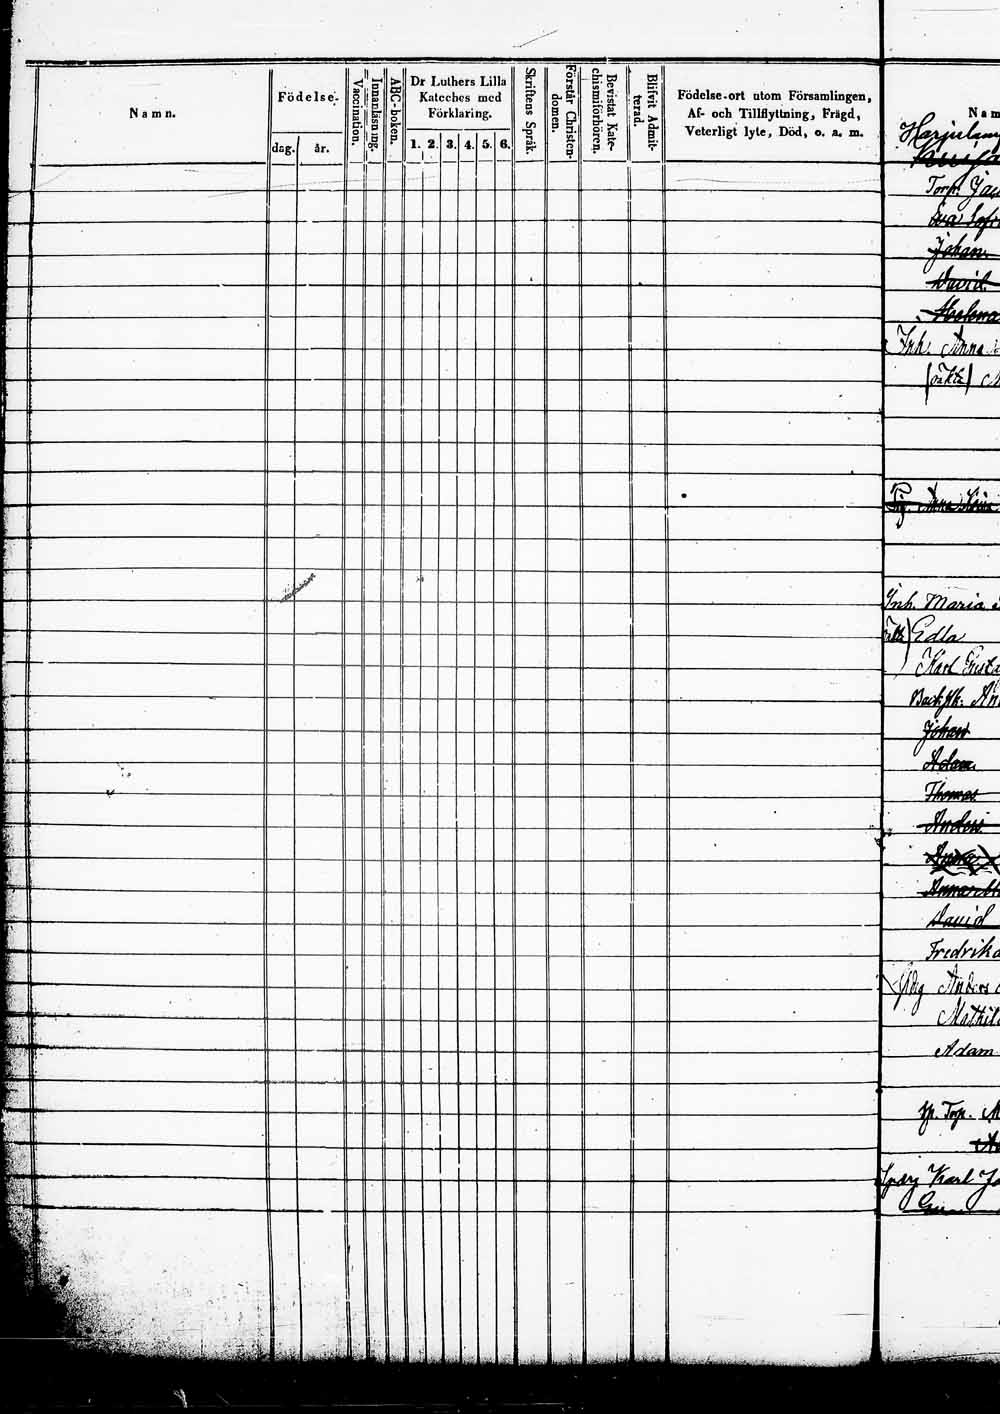 Namn.
Födelse-
dag.
år.
Vaccination.
Innanläsning.
ABC-boken.
Dr Luthers Lilla
Kateches med
Förklaring.
1. 2. 3. 4. 5. 6.
Skriftens Språk.
Förstår Christen-
domen.
Bevistat Kate-
chismiförhören.
Blifvit Admit-
terad.
Födelse-ort utom Församlingen,
Af- och Tillflyttning, Frägd,
Veterligt lyte, Död, o. a. m.
Nam
Torp.
Eva Sofi
Johan
David
Helena
Inh. Anna
(oäkta)
Anna
Inh. Maria
Edla
Karl Gusta
Johan
Adam
Thomas
Anders
Anna
David
Fredrika
Anders
Mathil
Adam
Torp.
Karl